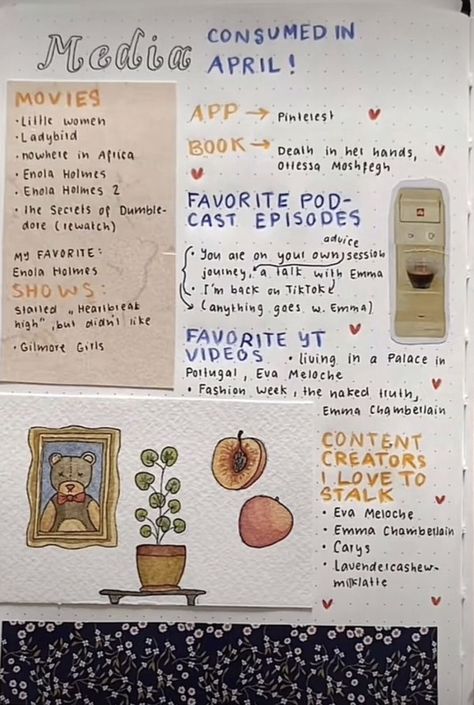 Media
CONSUMED IN
APRIL!
MOVIES
• Little women
• Ladybird
• nowhere in Africa
• Enola Holmes
• Enola Holmes 2
• The Secrets of Dumble-
dore (rewatch)
MY FAVORITE:
Enola Holmes
SHOWS:
started „Heartbreak
high", but didn't like
• Gilmore Girls
APP → Pinterest
BOOK → Death in her hands,
Ottessa Moshfegh
FAVORITE POD-
CAST EPISODES
• You are on your own
journey, a talk with Emma
advice
session
• I'm back on TikTok
(anything goes w. Emma)
FAVORITE YT
VIDEOS • living in a Palace in
Portugal, Eva Meloche
• Fashion week, the naked truth,
Emma Chamberlain
CONTENT
CREATORS
I LOVE TO
STALK
• Eva Meloche
• Emma Chamberlain
• Carys
• Lavendercashew-
milklatte